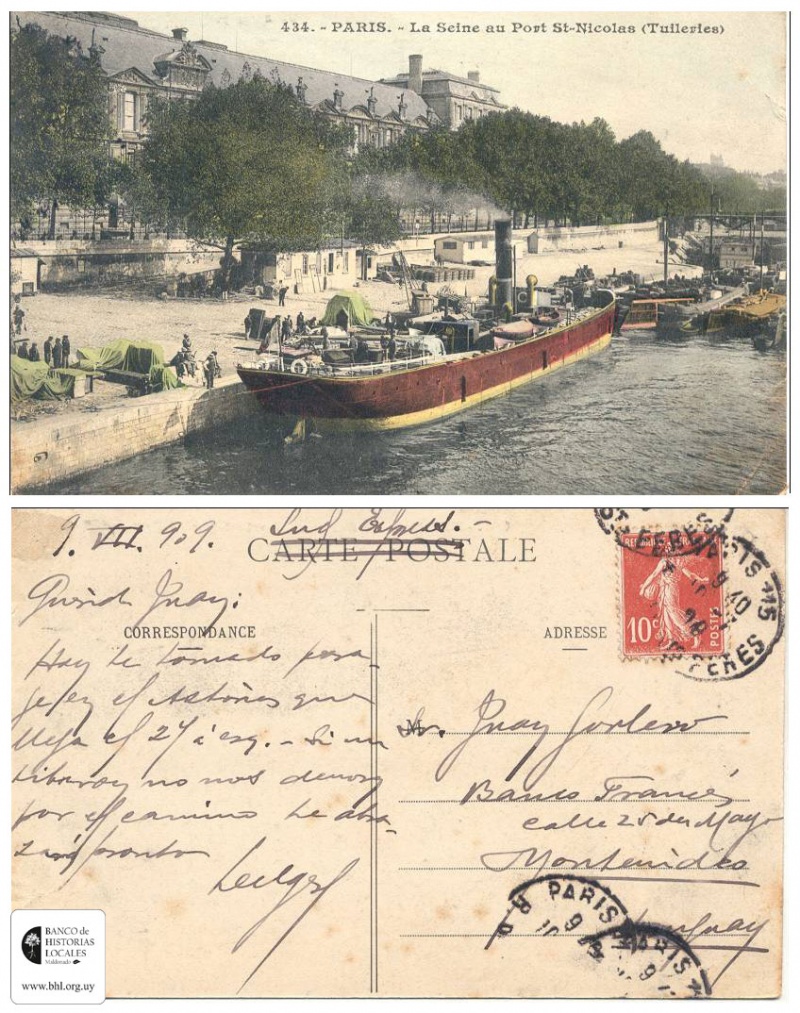 434. - PARIS. - La Seine au Port St-Nicolas (Tuileries)
9. VII. 909. Sud Express. -
CARTE POSTALE
Querido Juan:
CORRESPONDANCE
ADRESSE
10c
POSTES
Hoy he tomado pasa-
je en el que
llega el 27 á esa. - Si un
no nos
por el camino te abra-
zará pronto
Sr. Juan Gorlero
Banco Francés
calle 25 de Mayo
Montevideo
Uruguay
PARIS
PARIS
BANCO de
HISTORIAS
LOCALES
Maldonado
www.bhl.org.uy